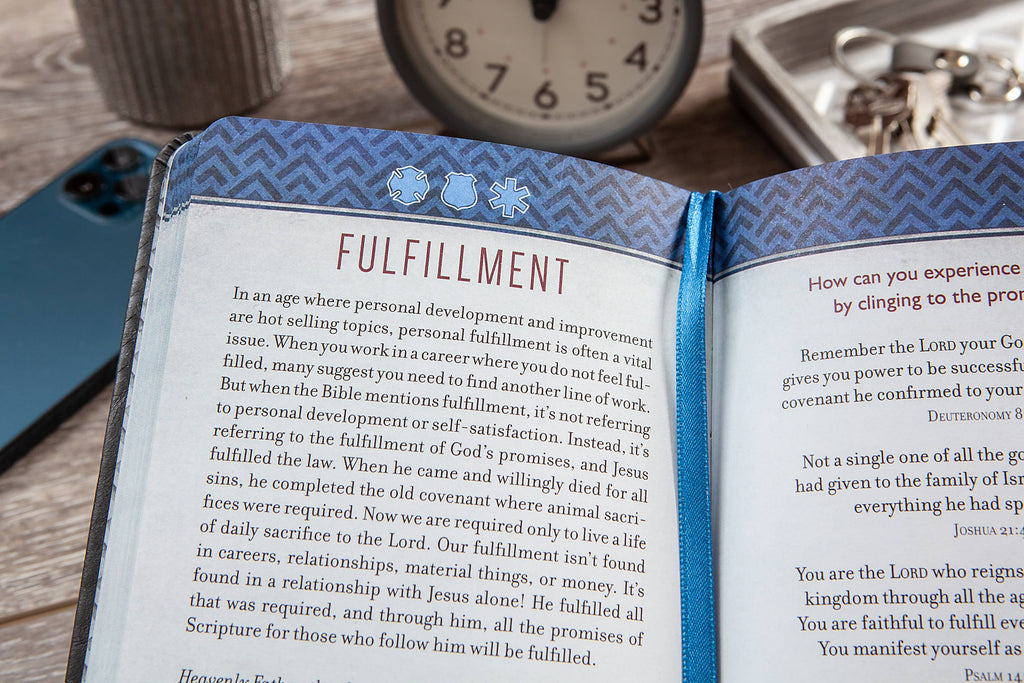 8
7
6
5
4
3
FULFILLMENT
In an age where personal development and improvement
are hot selling topics, personal fulfillment is often a vital
issue. When you work in a career where you do not feel ful-
filled, many suggest you need to find another line of work.
But when the Bible mentions fulfillment, it's not referring
to personal development or self-satisfaction. Instead, it's
referring to the fulfillment of God's promises, and Jesus
fulfilled the law. When he came and willingly died for all
sins, he completed the old covenant where animal sacri-
fices were required. Now we are required only to live a life
of daily sacrifice to the Lord. Our fulfillment isn't found
in careers, relationships, material things, or money. It's
found in a relationship with Jesus alone! He fulfilled all
that was required, and through him, all the promises of
Scripture for those who follow him will be fulfilled.
Heavenly
How can you experience
by clinging to the
Remember the LORD your
gives you power to be
covenant he confirmed to your
DEUTERONOMY 8
Not a single one of all the
had given to the family of
everything he had
JOSHUA 21:
You are the LORD who reigns
kingdom through all the
You are faithful to fulfill
You manifest yourself as
PSALM 14